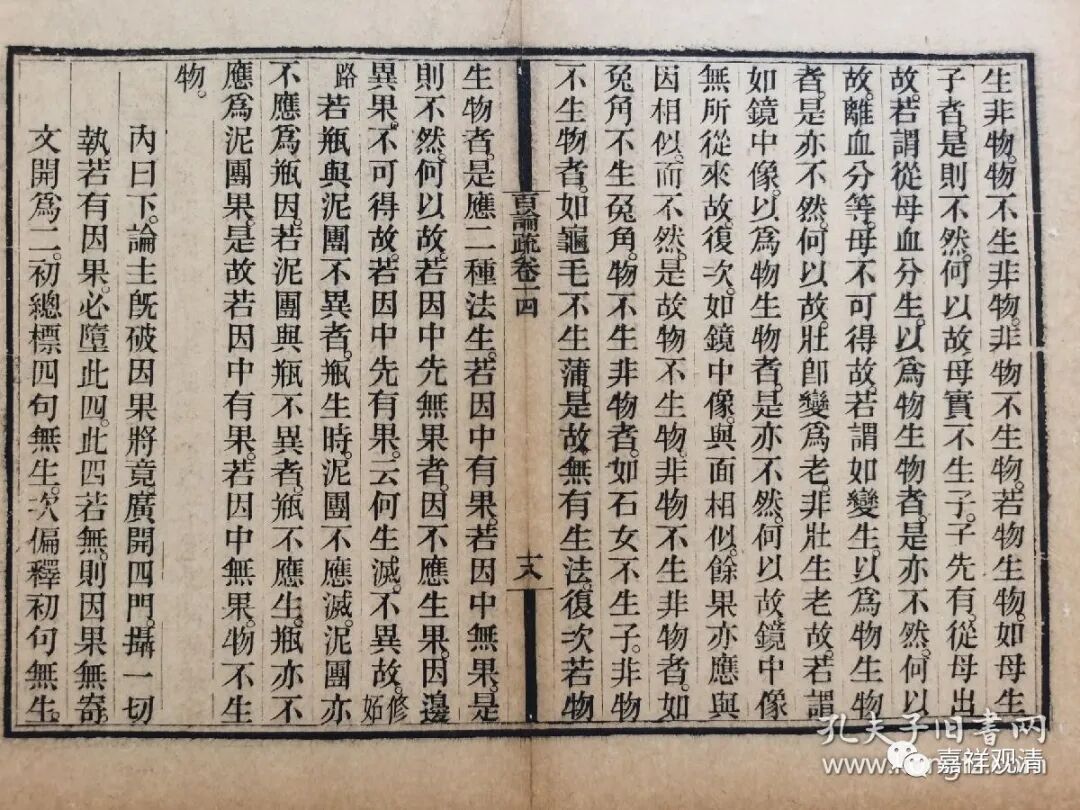 生非物。物不生非物。非物不生物。若物生物。如母生
子者。是則不然。何以故。母實不生子。子先有。從母出
故。若謂從母血分生。以爲物生物者。是亦不然。何以
故。離血分等。母不可得故。若謂如變生。以爲物生物
者。是亦不然。何以故。壯卽變爲老。非壯生老故。若謂
如鏡中像。以爲物生物者。是亦不然。何以故。鏡中像
無所從來故。復次。如鏡中像。與面相似。餘果亦應與
因相似。而不然。是故物不生物。非物不生非物者。如
兔角不生兔角。物不生非物者。如石女不生子。非物
不生物者。如龜毛不生蒲。是故無有生法。復次若物
百論疏卷十四
十八
生物者。是應二種法生。若因中有果。若因中無果。是
則不然。何以故。若因中先無果者。因不應生果。因邊
異果。不可得故。若因中先有果。云何生滅。不異故。修妬
路若瓶與泥團不異者。瓶生時。泥團不應滅。泥團亦
不應爲瓶因。若泥團與瓶不異者。瓶不應生。瓶亦不
應爲泥團果。是故若因中有果。若因中無果。物不生
物。
內曰下。論主旣破因果將竟。廣開四門。攝一切
執。若有因果。必墮此四。此四若無。則因果無寄。
文開爲二。初總標四句無生。次偏釋初句無生。
孔夫子旧书网
嘉祥观清